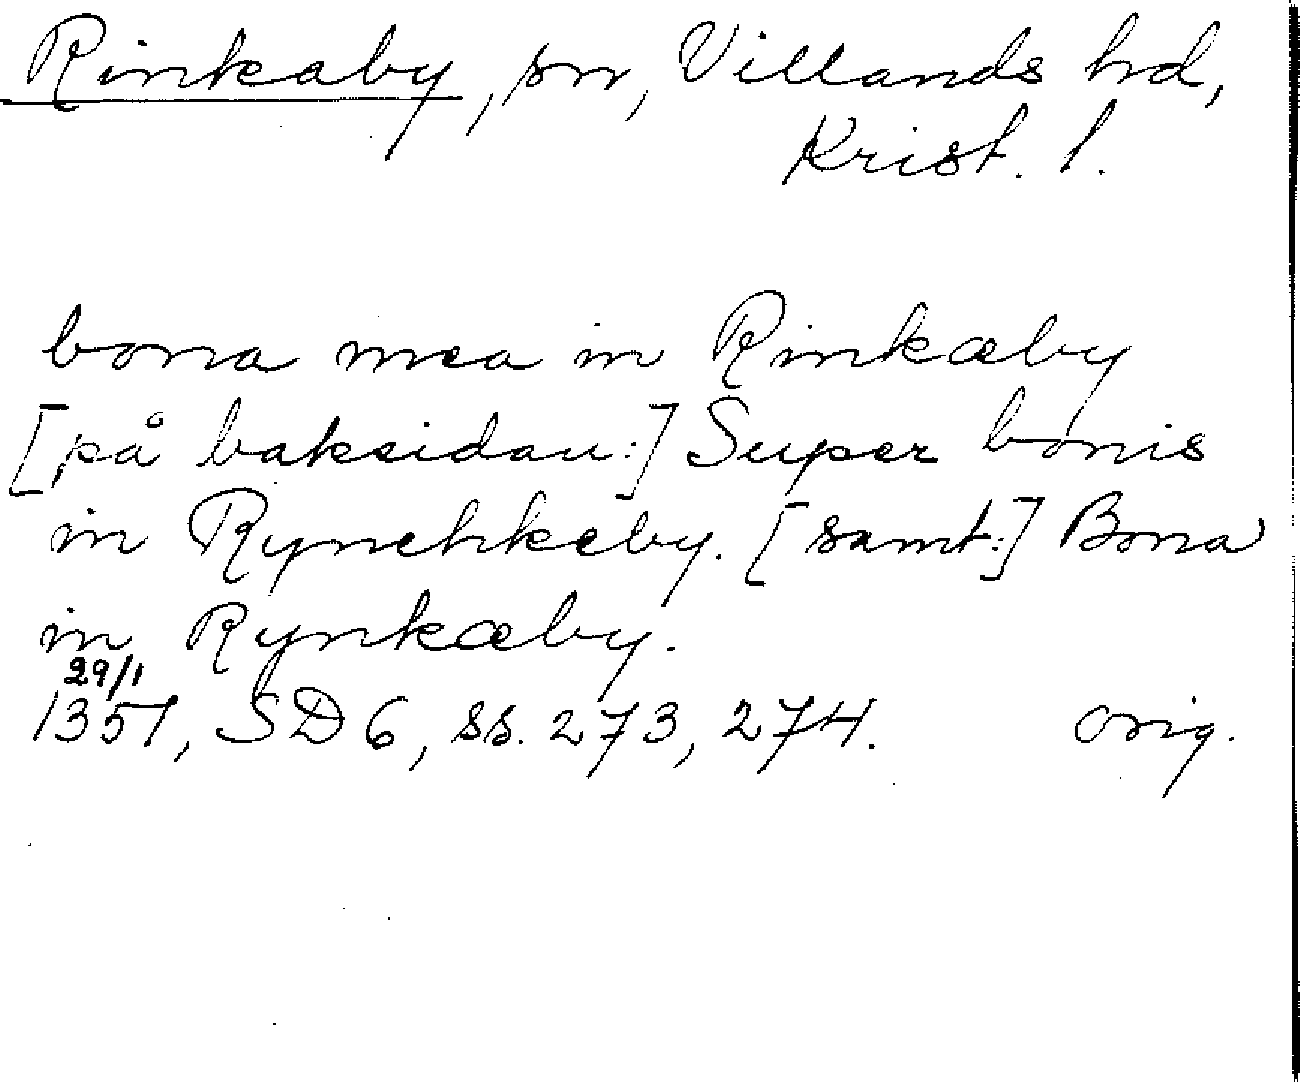 Rinkaby, sn, Villands hd,
Krist. l.
bona mea in Rinkæby
[på baksidan:] Super bonis
in Rynchkeby. [samt:] Bona
in Rynkæby.
29/1
1351, SD 6, ss. 273, 274. orig.